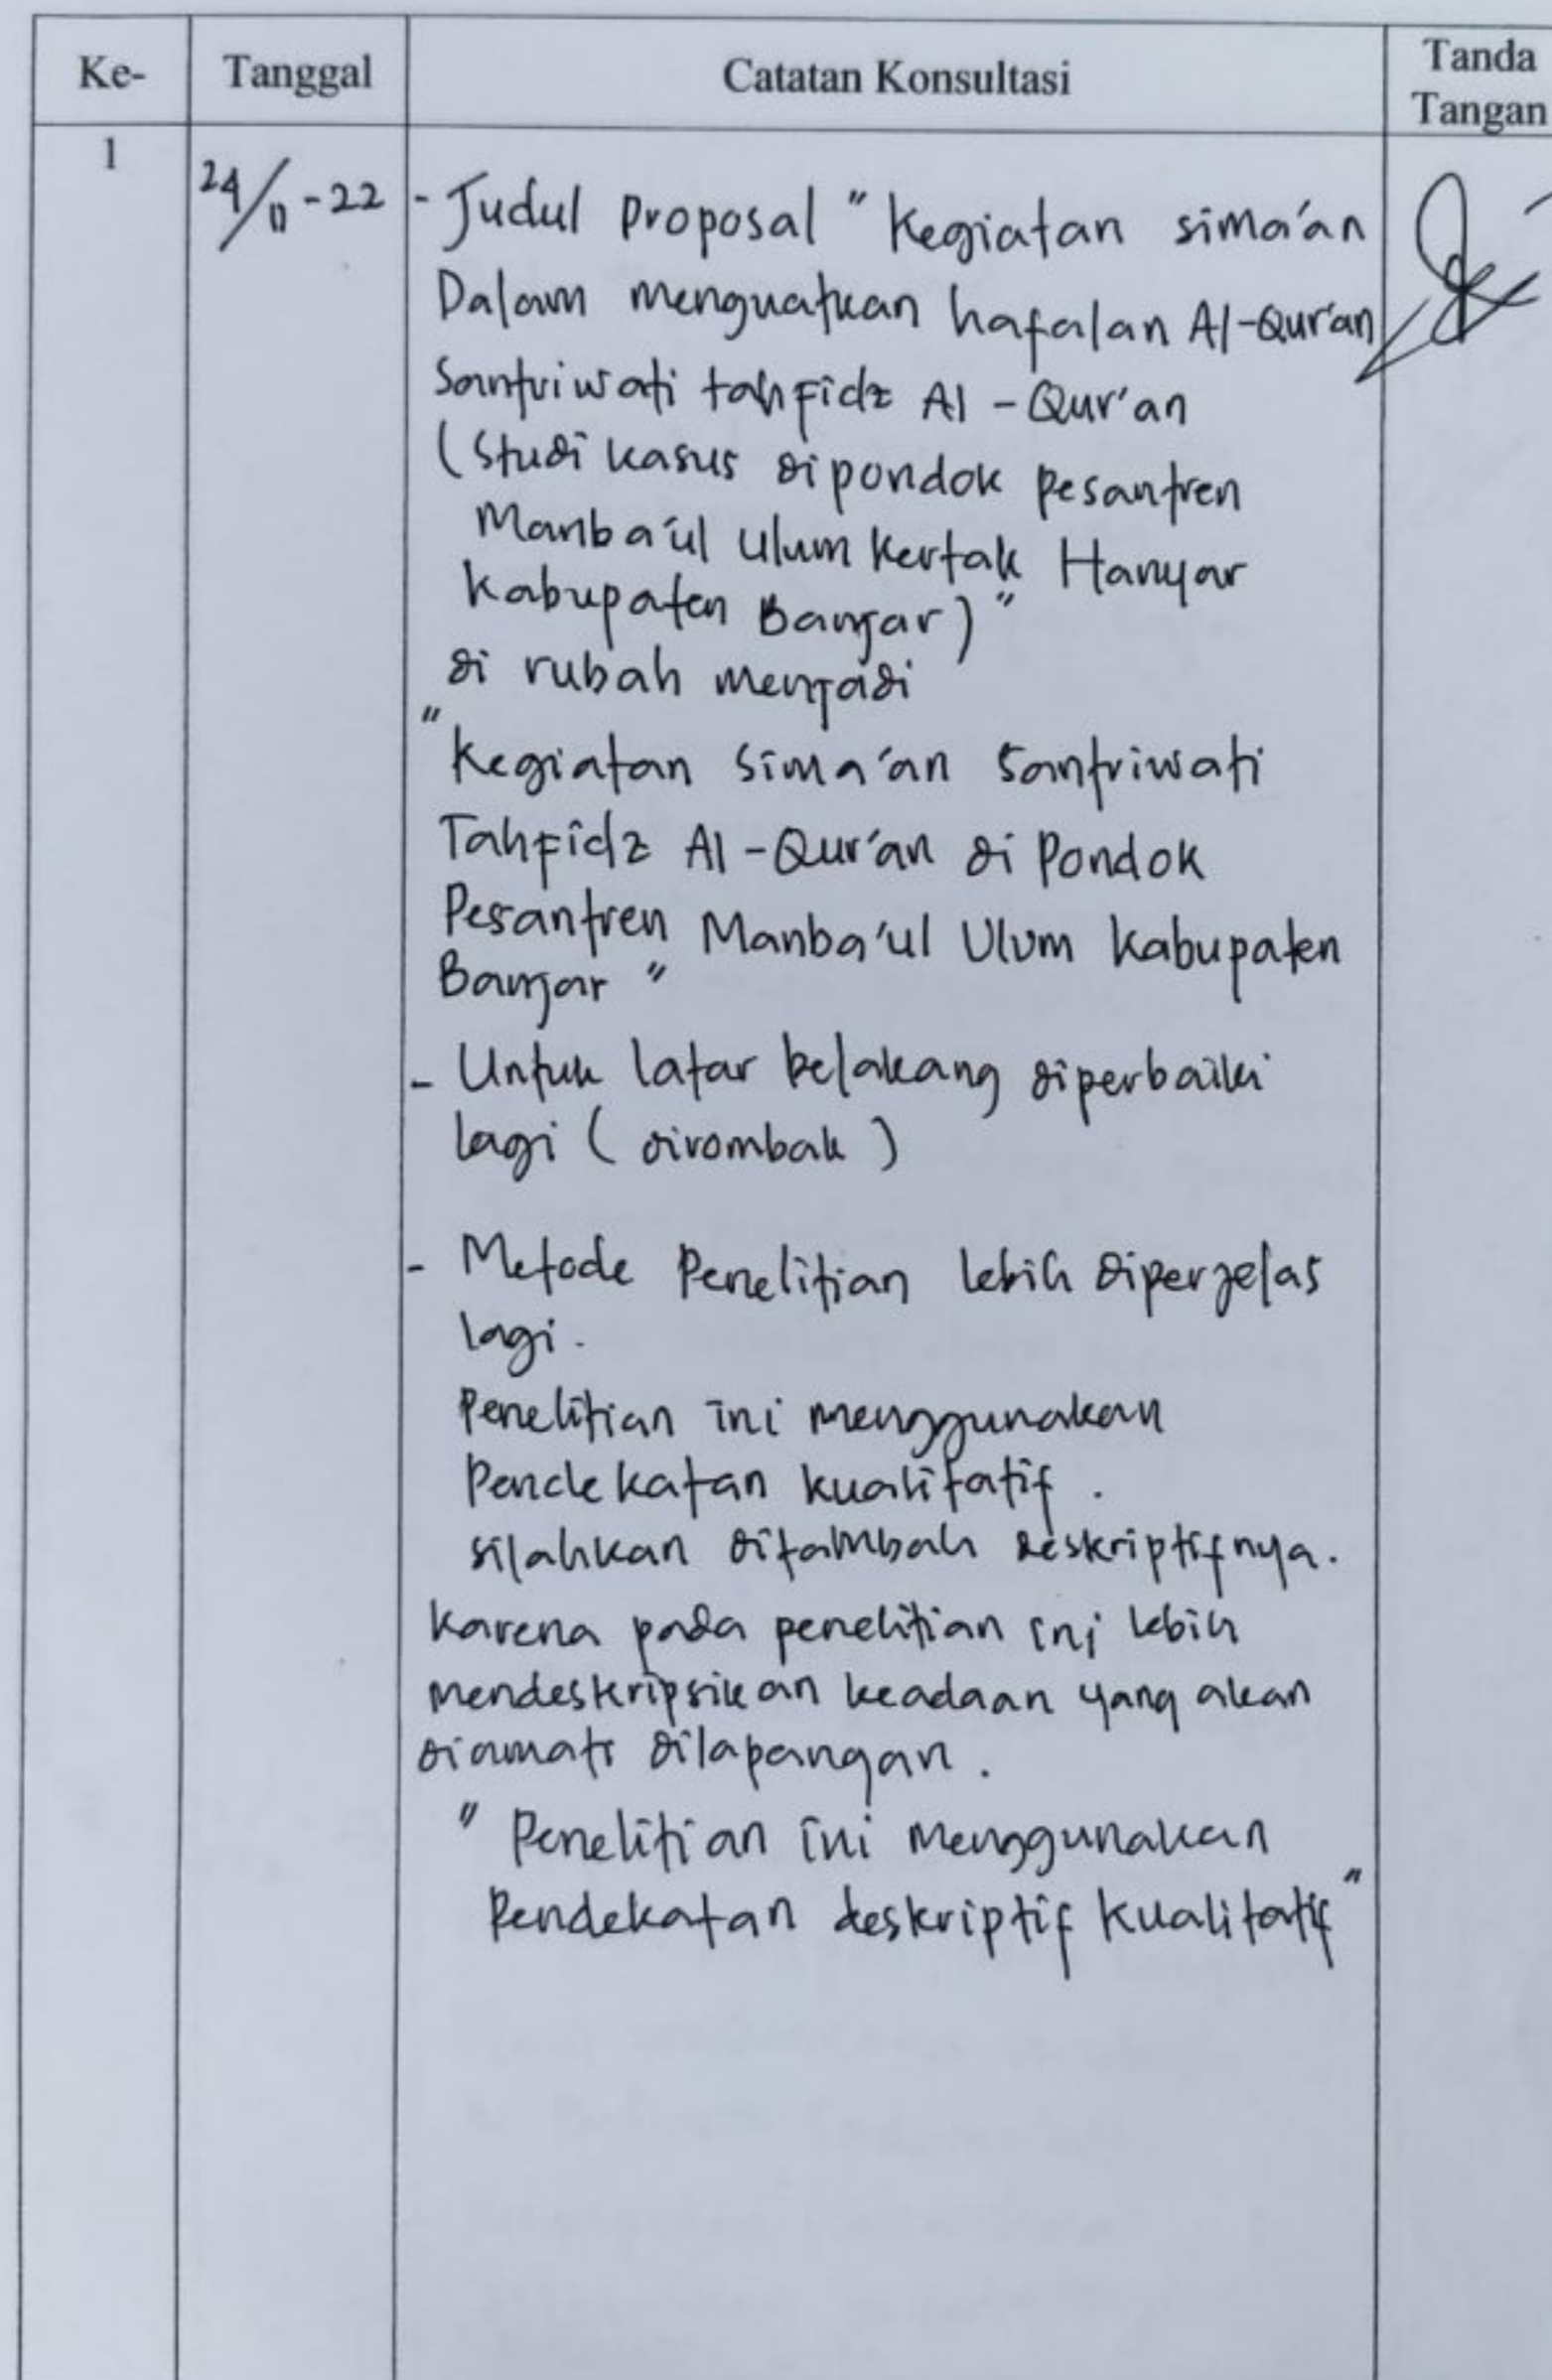 Ke-
Tanggal
Catatan Konsultasi
Tanda
Tangan
1
24/11-22
- Judul Proposal "Kegiatan sima'an
Dalam menguatkan hafalan Al-Qur'an
Santriwati tahfidz Al-Qur'an
(Studi kasus dipondok pesantren
Manba'ul Ulum Kertak Hanyar
Kabupaten Banjar)"
di rubah menjadi
"Kegiatan Sima'an Santriwati
Tahfidz Al-Qur'an di Pondok
Pesantren Manba'ul Ulum Kabupaten
Banjar"
- Untuk latar belakang diperbaiki
lagi (dirombak)
- Metode Penelitian lebih diperjelas
lagi.
Penelitian ini menggunakan
Pendekatan kualitatif.
silahkan ditambah deskriptifnya.
karena pada penelitian ini lebih
mendeskripsikan keadaan yang akan
diamati dilapangan.
"Penelitian ini menggunakan
Pendekatan deskriptif kualitatif"